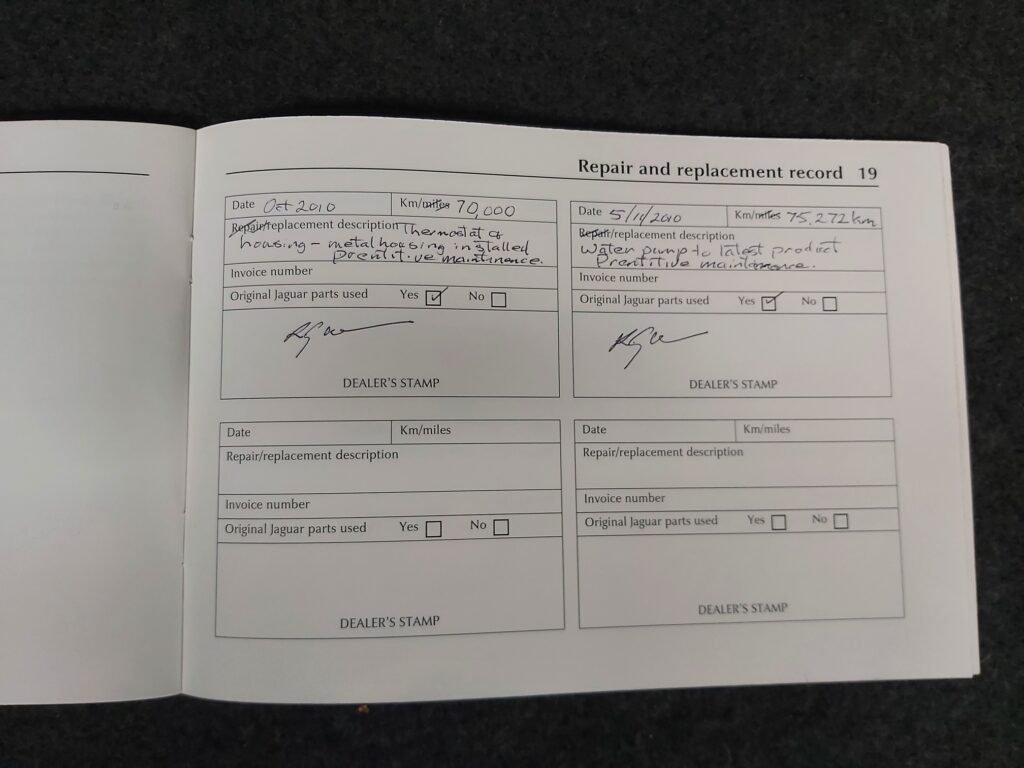 Repair and replacement record 19
Date Oct 2010 Km/miles 70,000
Repair/replacement description Thermostat &
housing - metal housing installed
Prentitive maintinence.
Invoice number
Original Jaguar parts used Yes No
DEALER'S STAMP
Date 5/11/2010 Km/miles 75,272 km
Repair/replacement description
Water pump to latest product
Prentitive maintenance.
Invoice number
Original Jaguar parts used Yes No
DEALER'S STAMP
Date Km/miles
Repair/replacement description
Invoice number
Original Jaguar parts used Yes No
DEALER'S STAMP
Date Km/miles
Repair/replacement description
Invoice number
Original Jaguar parts used Yes No
DEALER'S STAMP